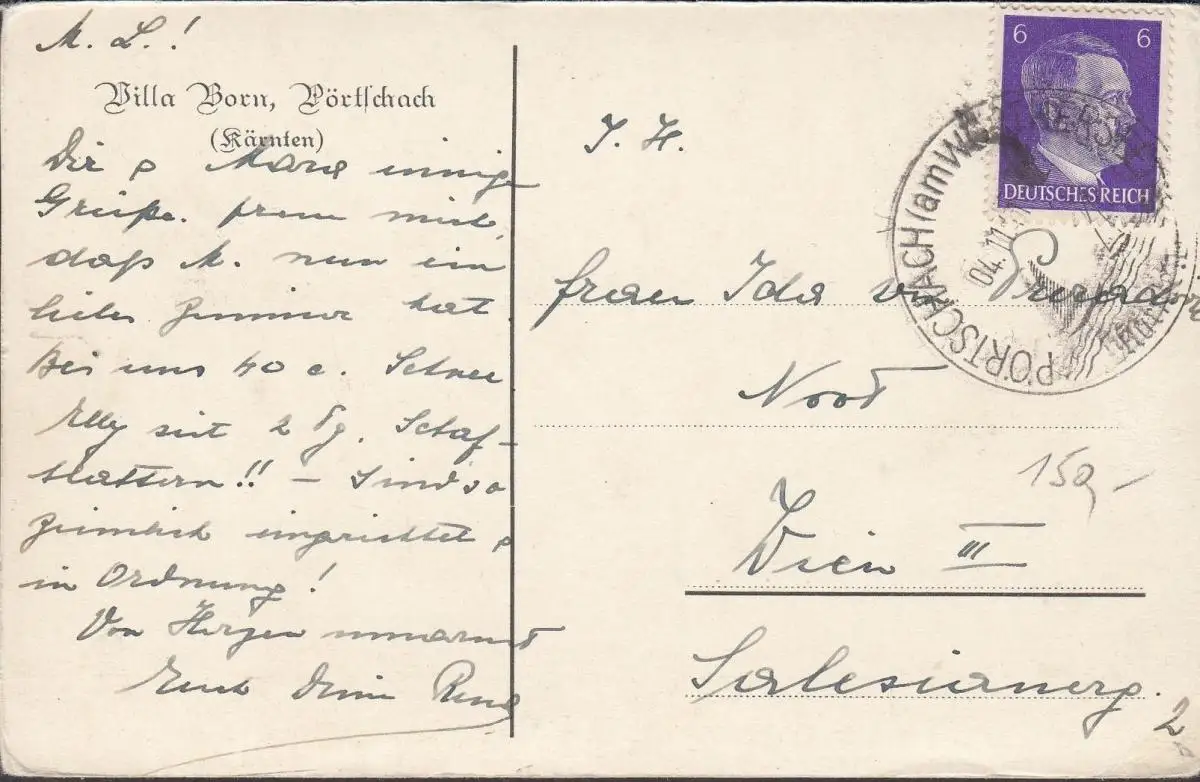 M. L.!
Villa Born, Pörtschach
(Kärnten)
Dir & Mara einige
Grüße. freu mich,
daß M. nun ein
liebes Zimmer hat
Bei uns 40 c. Schnee
Elly seit 2 Tg. Schaf-
blattern!! – Sind so
ziemlich eingerichtet &
in Ordnung!
Von Herzen umarmt
Euch Deine
6 6
DEUTSCHES REICH
PÖRTSCHACH (am
04.11
I. H.
Frau Ida v.
Wien III
Salesianerg.
150,-
2